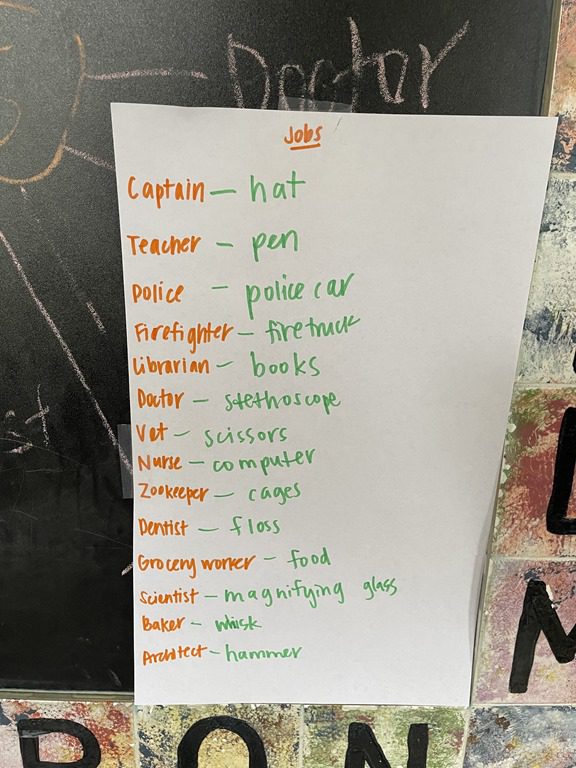 Doctor
Jobs
Captain — hat
Teacher – pen
Police – police car
Firefighter – firetruck
Librarian – books
Doctor – stethoscope
Vet – scissors
Nurse – computer
Zookeeper – cages
Dentist – floss
Grocery worker – food
Scientist – magnifying glass
Baker – whisk
Architect – hammer
L
M
RON